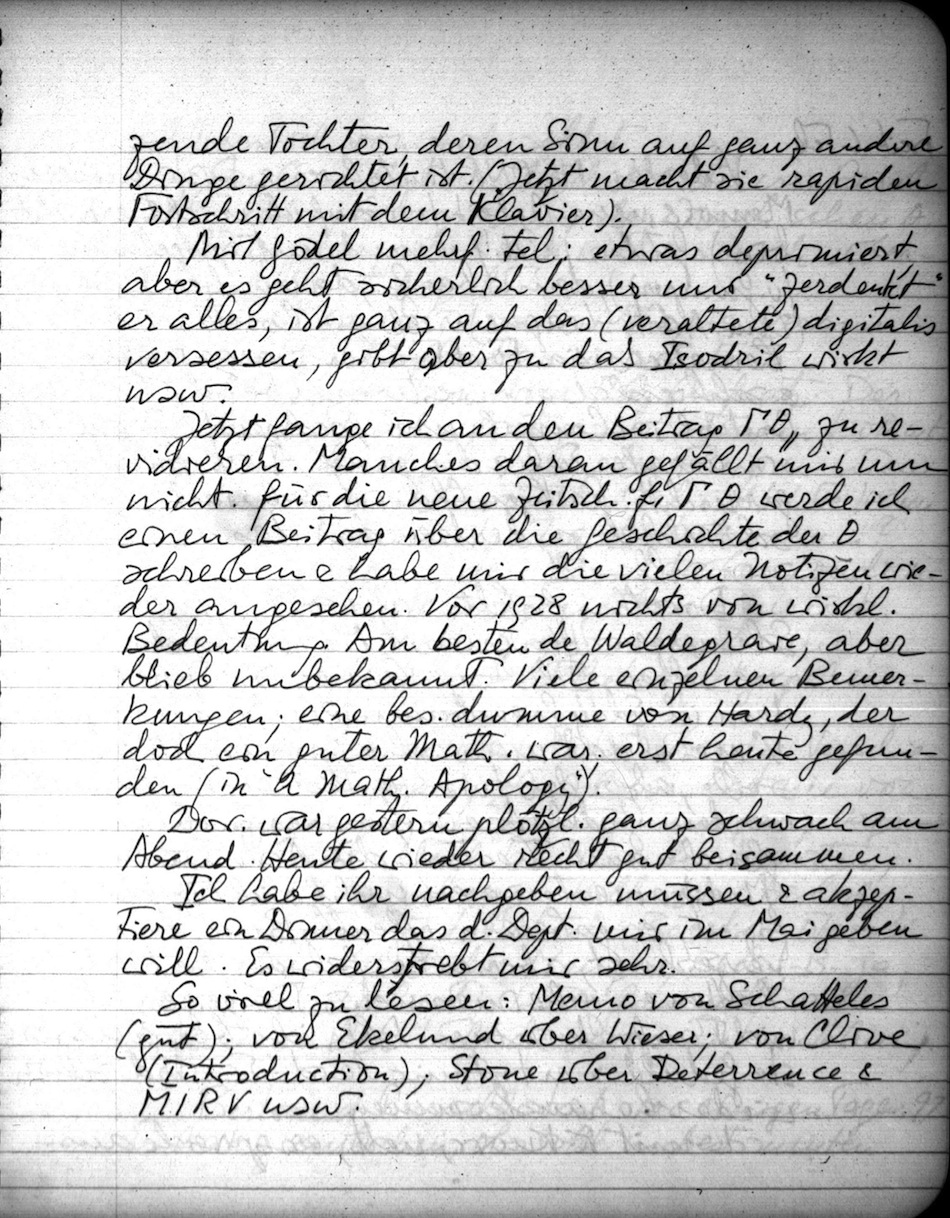 zende Tochter, deren Sinn auf ganz andere
Dinge gerichtet ist. (Jetzt macht sie rapiden
Fortschritt mit dem Klavier).
Mit Gödel mehrf. tel; etwas deprimiert,
aber es geht sicherlich besser nur "zerdenkt"
er alles, ist ganz auf das (veraltete) digitalis
versessen, gibt aber zu das Isodril wirkt
usw.
Jetzt fange ich an den Beitrag Γθ,, zu re-
vidieren. Manches daran gefällt mir nun
nicht. Für die neue Zeitsch. f. Γ θ werde ich
einen Beitrag über die Geschichte der θ
schreiben & habe mir die vielen Notizen wie-
der angesehen. Vor 1928 nichts von wirkl.
Bedeutung. Am besten de Waldegrave, aber
blieb unbekannt. Viele einzelnen Bemer-
kungen; eine bes. dumme von Hardy, der
doch ein guter Math. war. erst heute gefun-
den (in "A Math. Apology").
Dor. war gestern plötzl. ganz schwach am
Abend. Heute wieder recht gut beisammen.
Ich habe ihr nachgeben müssen & akzep-
tiere ein Dinner das d. Dept. mir im Mai geben
will. Es widerstrebt mir sehr.
So viel zu lesen: Memo von Schatteles
(gut); von Ekelund über Wieser; von Clive
(Introduction); Stone über Deterrence &
MIRV usw.